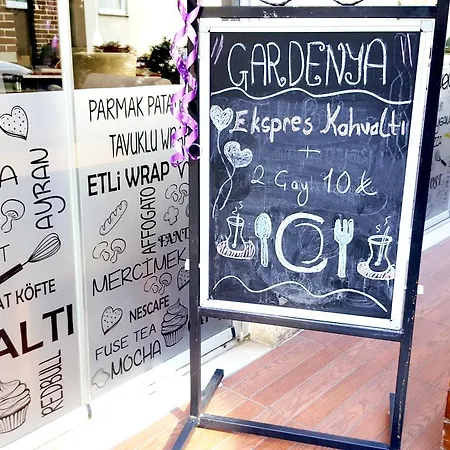 "GARDENYA"
Ekspres Kahvaltı
+
2 Çay 10₺
PARMAK PATA
TAVUKLU WR
ETLİ WRAP
AFFOGATO
FANT
MERCİMEK
NESCAFE
FUSE TEA
MOCHA
AYRAN
AT KÖFTE
ALTI
REDBULL